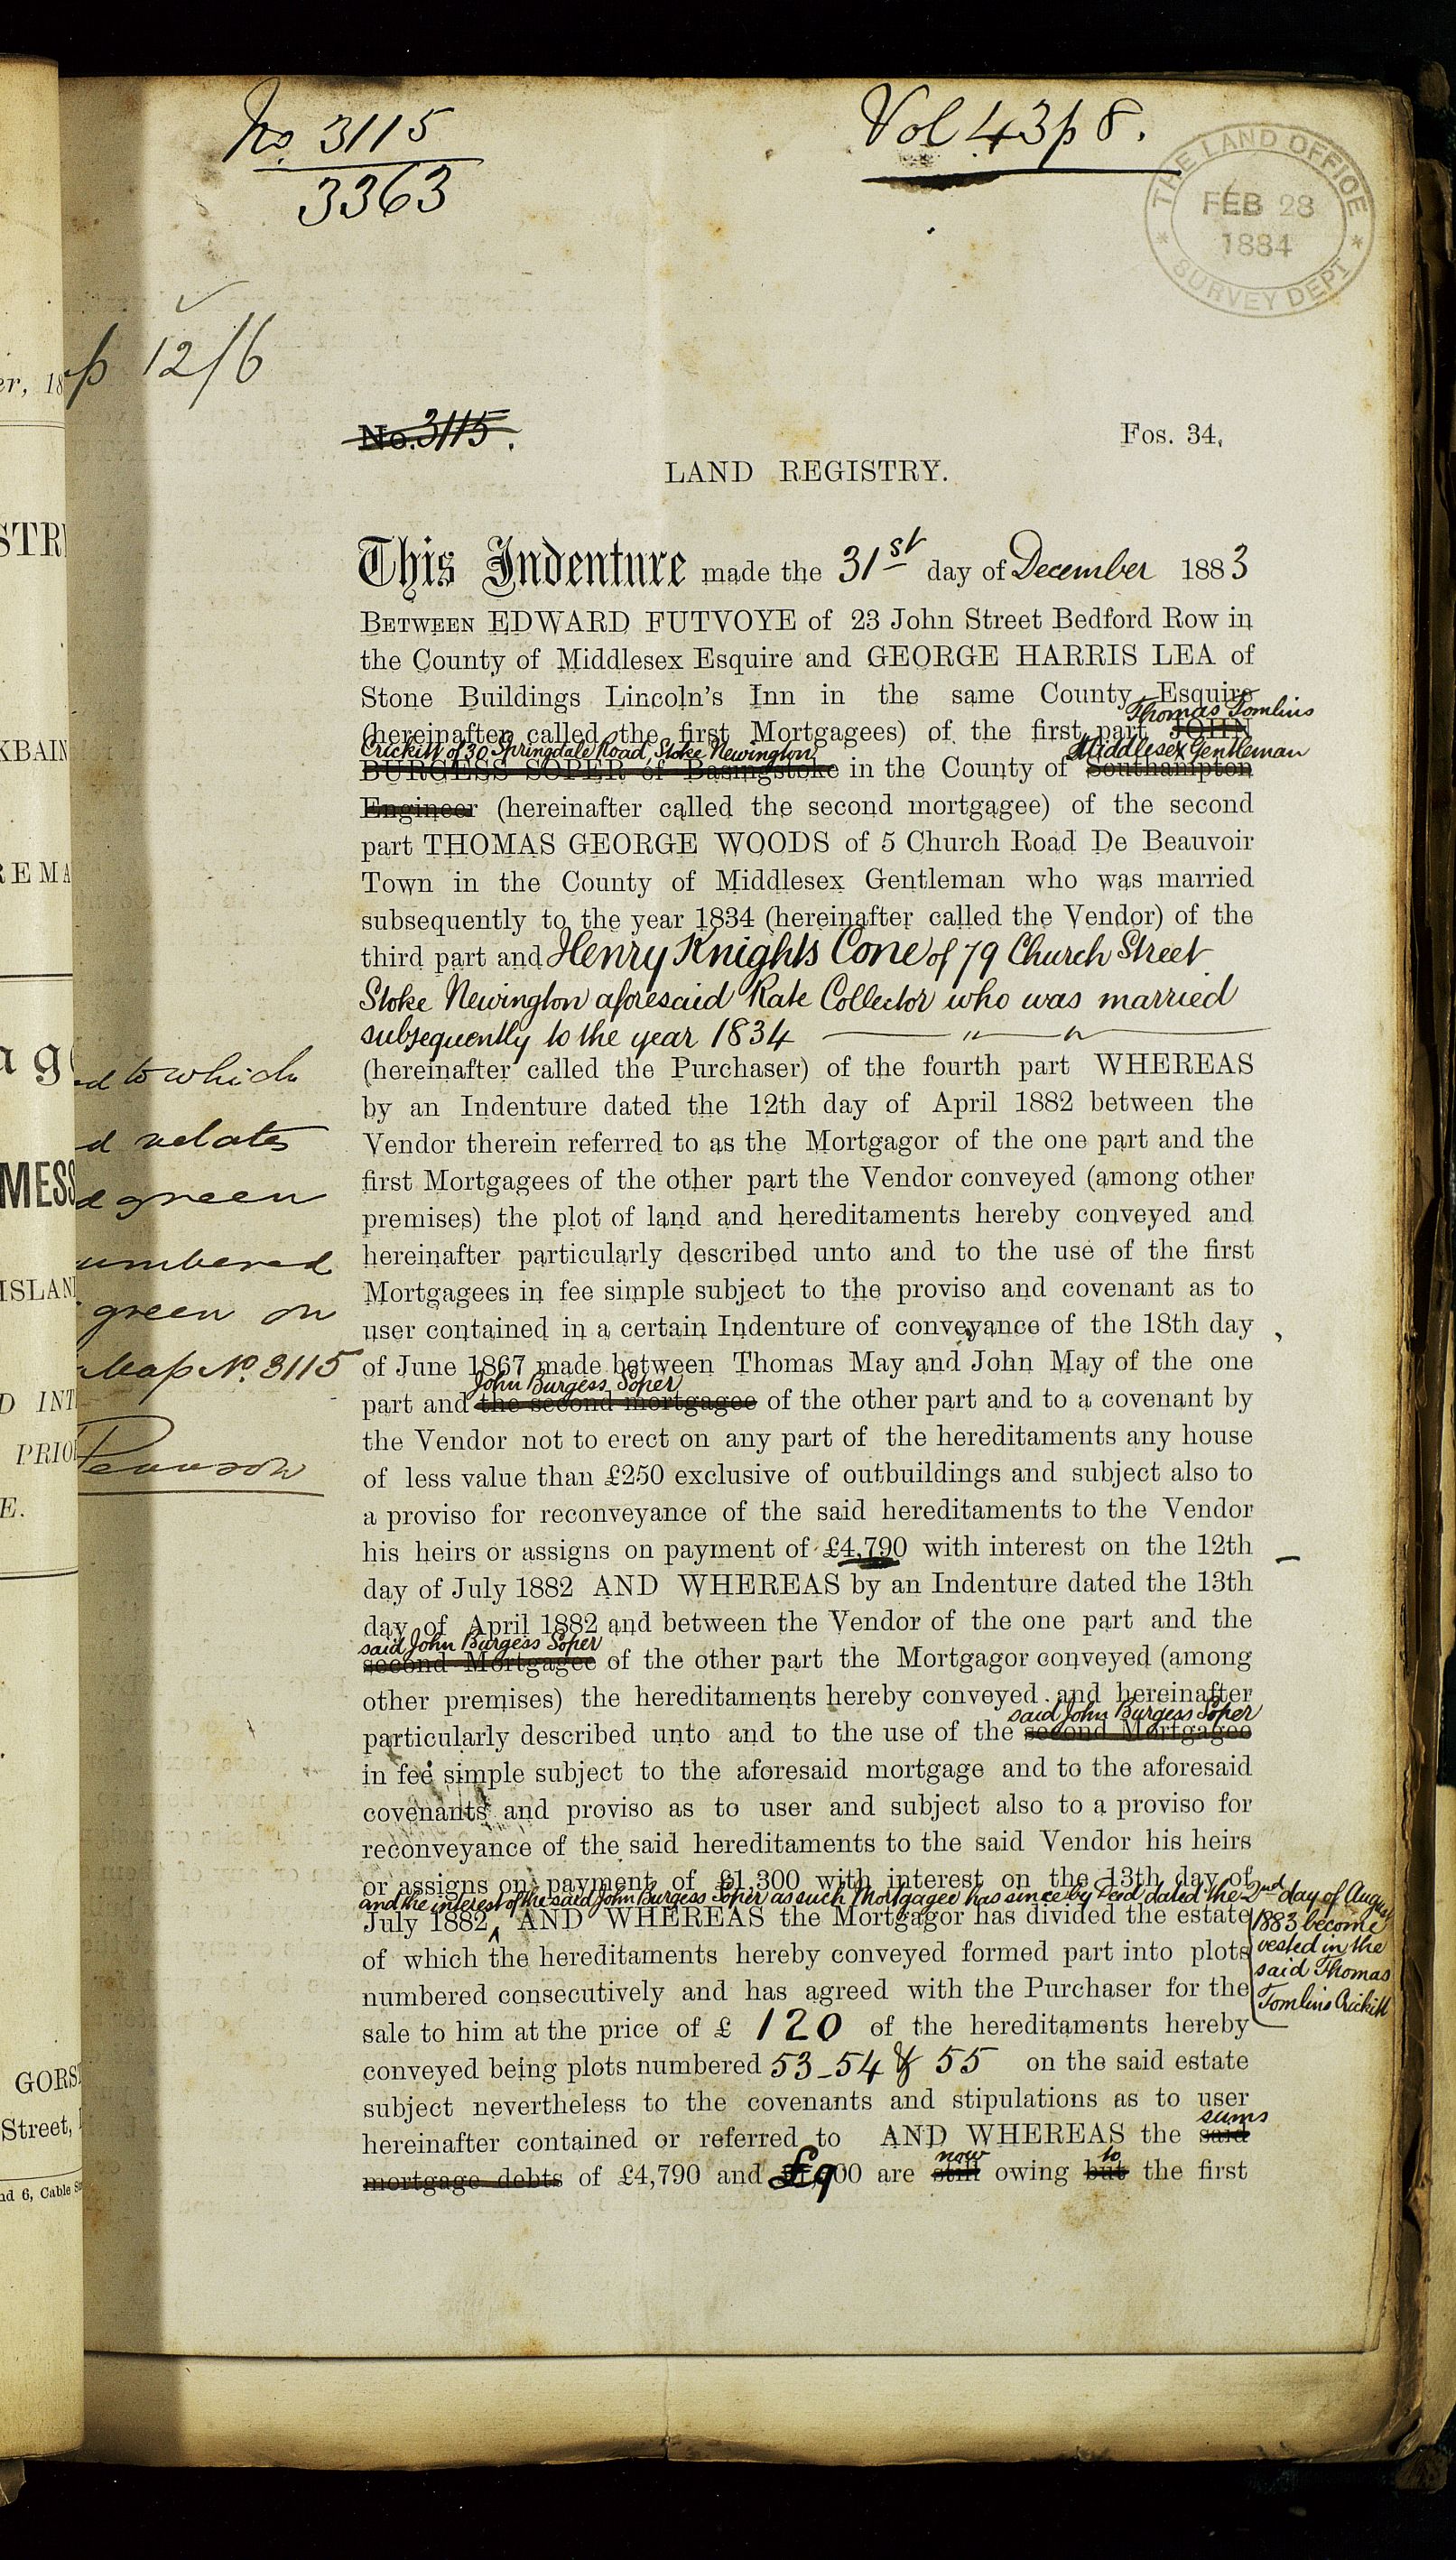 No. 3115
3363
Vol 43 p 8.
THE LAND OFFICE
FEB 28
1884
SURVEY DEPT
p 12/6
er, 18
No. 3115.
Fos. 34.
LAND REGISTRY.
This Indenture made the 31st day of December 1883
BETWEEN EDWARD FUTVOYE of 23 John Street Bedford Row in
the County of Middlesex Esquire and GEORGE HARRIS LEA of
Stone Buildings Lincoln's Inn in the same County Esquire
Thomas Tomlins
(hereinafter called the first Mortgagees) of the first part JOHN
Crickitt of 30 Springdale Road, Stoke Newington Middlesex Gentleman
BURGESS SOPER of Basingstoke in the County of Southampton
Engineer (hereinafter called the second mortgagee) of the second
part THOMAS GEORGE WOODS of 5 Church Road De Beauvoir
Town in the County of Middlesex Gentleman who was married
subsequently to the year 1834 (hereinafter called the Vendor) of the
third part and Henry Knights Cone of 79 Church Street
Stoke Newington aforesaid Rate Collector who was married
subsequently to the year 1834
(hereinafter called the Purchaser) of the fourth part WHEREAS
by an Indenture dated the 12th day of April 1882 between the
Vendor therein referred to as the Mortgagor of the one part and the
first Mortgagees of the other part the Vendor conveyed (among other
premises) the plot of land and hereditaments hereby conveyed and
hereinafter particularly described unto and to the use of the first
Mortgagees in fee simple subject to the proviso and covenant as to
user contained in a certain Indenture of conveyance of the 18th day
of June 1867 made between Thomas May and John May of the one
John Burgess Soper
part and the second mortgagee of the other part and to a covenant by
the Vendor not to erect on any part of the hereditaments any house
of less value than £250 exclusive of outbuildings and subject also to
a proviso for reconveyance of the said hereditaments to the Vendor
his heirs or assigns on payment of £4,790 with interest on the 12th
day of July 1882 AND WHEREAS by an Indenture dated the 13th
day of April 1882 and between the Vendor of the one part and the
said John Burgess Soper
second Mortgagee of the other part the Mortgagor conveyed (among
other premises) the hereditaments hereby conveyed and hereinafter
said John Burgess Soper
particularly described unto and to the use of the second Mortgagee
in fee simple subject to the aforesaid mortgage and to the aforesaid
covenants and proviso as to user and subject also to a proviso for
reconveyance of the said hereditaments to the said Vendor his heirs
or assigns on payment of £1,300 with interest on the 13th day of
and the interest of the said John Burgess Soper as such Mortgagee has since by Deed dated the 2nd day of August
July 1882 AND WHEREAS the Mortgagor has divided the estate
1883 become
vested in the
said Thomas
Tomlins Crickitt
of which the hereditaments hereby conveyed formed part into plots
numbered consecutively and has agreed with the Purchaser for the
sale to him at the price of £ 120 of the hereditaments hereby
conveyed being plots numbered 53-54 & 55 on the said estate
subject nevertheless to the covenants and stipulations as to user
sums
hereinafter contained or referred to AND WHEREAS the said
now to
mortgage debts of £4,790 and £900 are still owing but the first
d to which
d relates
d green
umbered
green on
Map No. 3115
Pearson
STR
KBAIN
REMA
ag
MESS
ISLAN
D INT
PRIO
E.
GORS
Street,
nd 6, Cable S